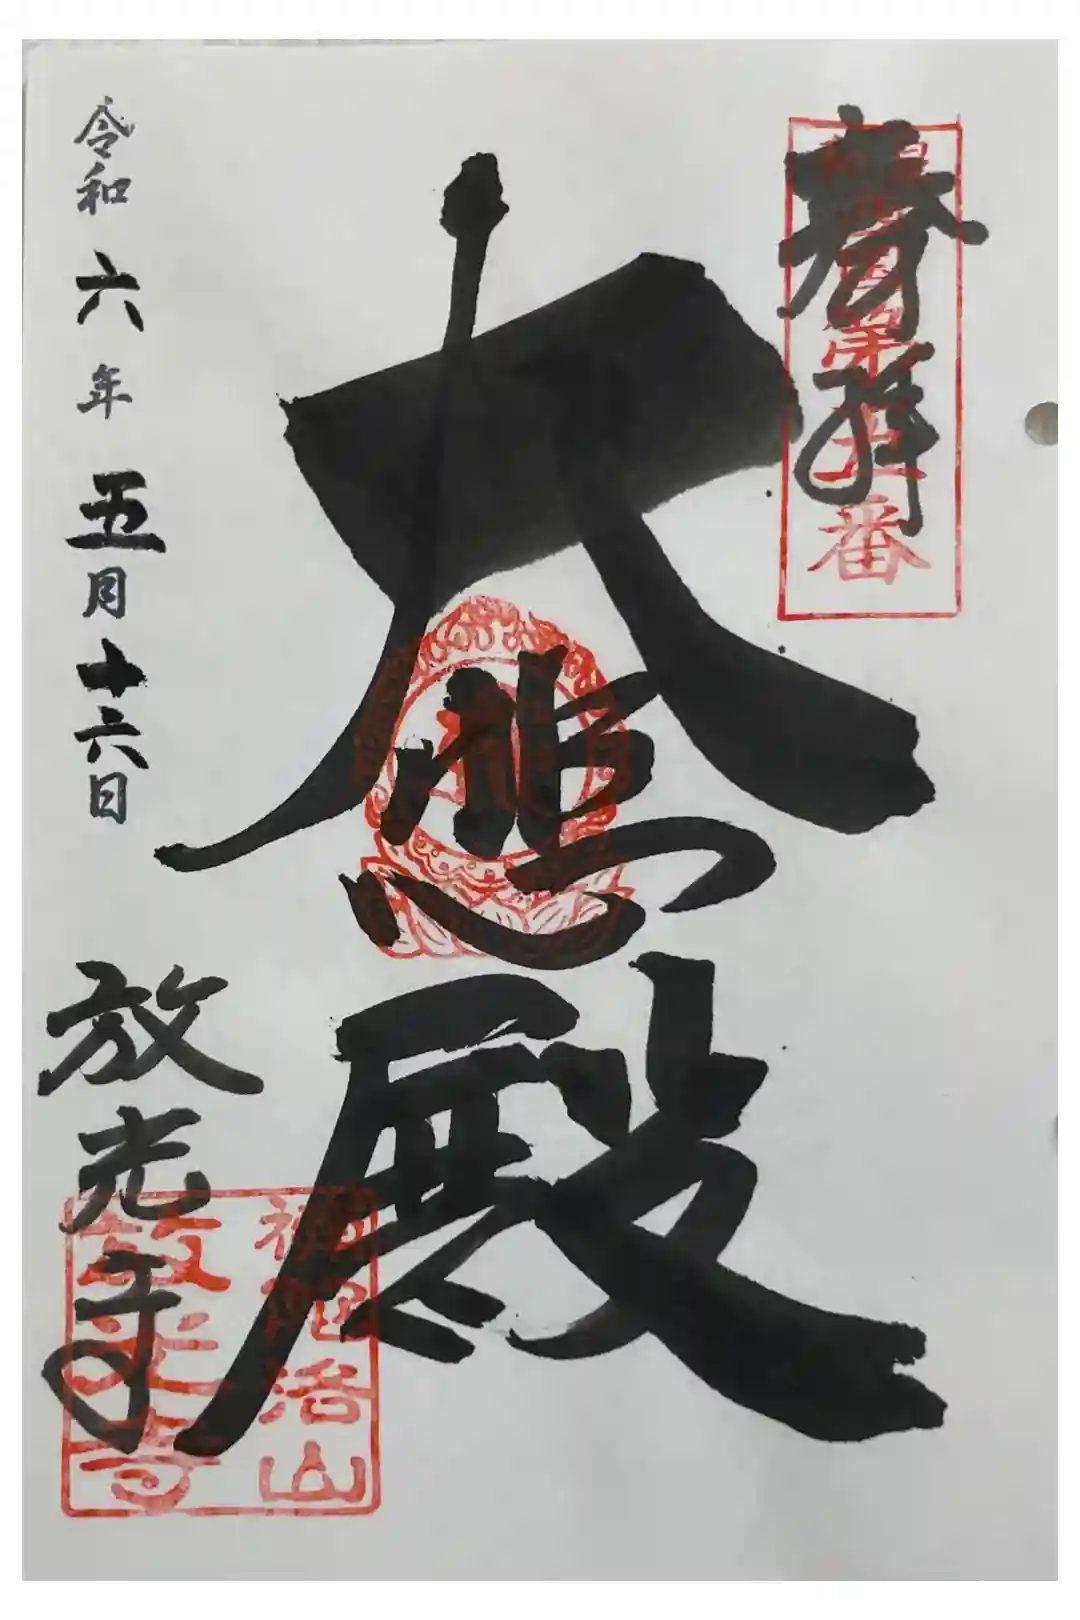 奉拝
大悲殿
令和六年五月十六日
放光寺
補陀洛山
放光寺